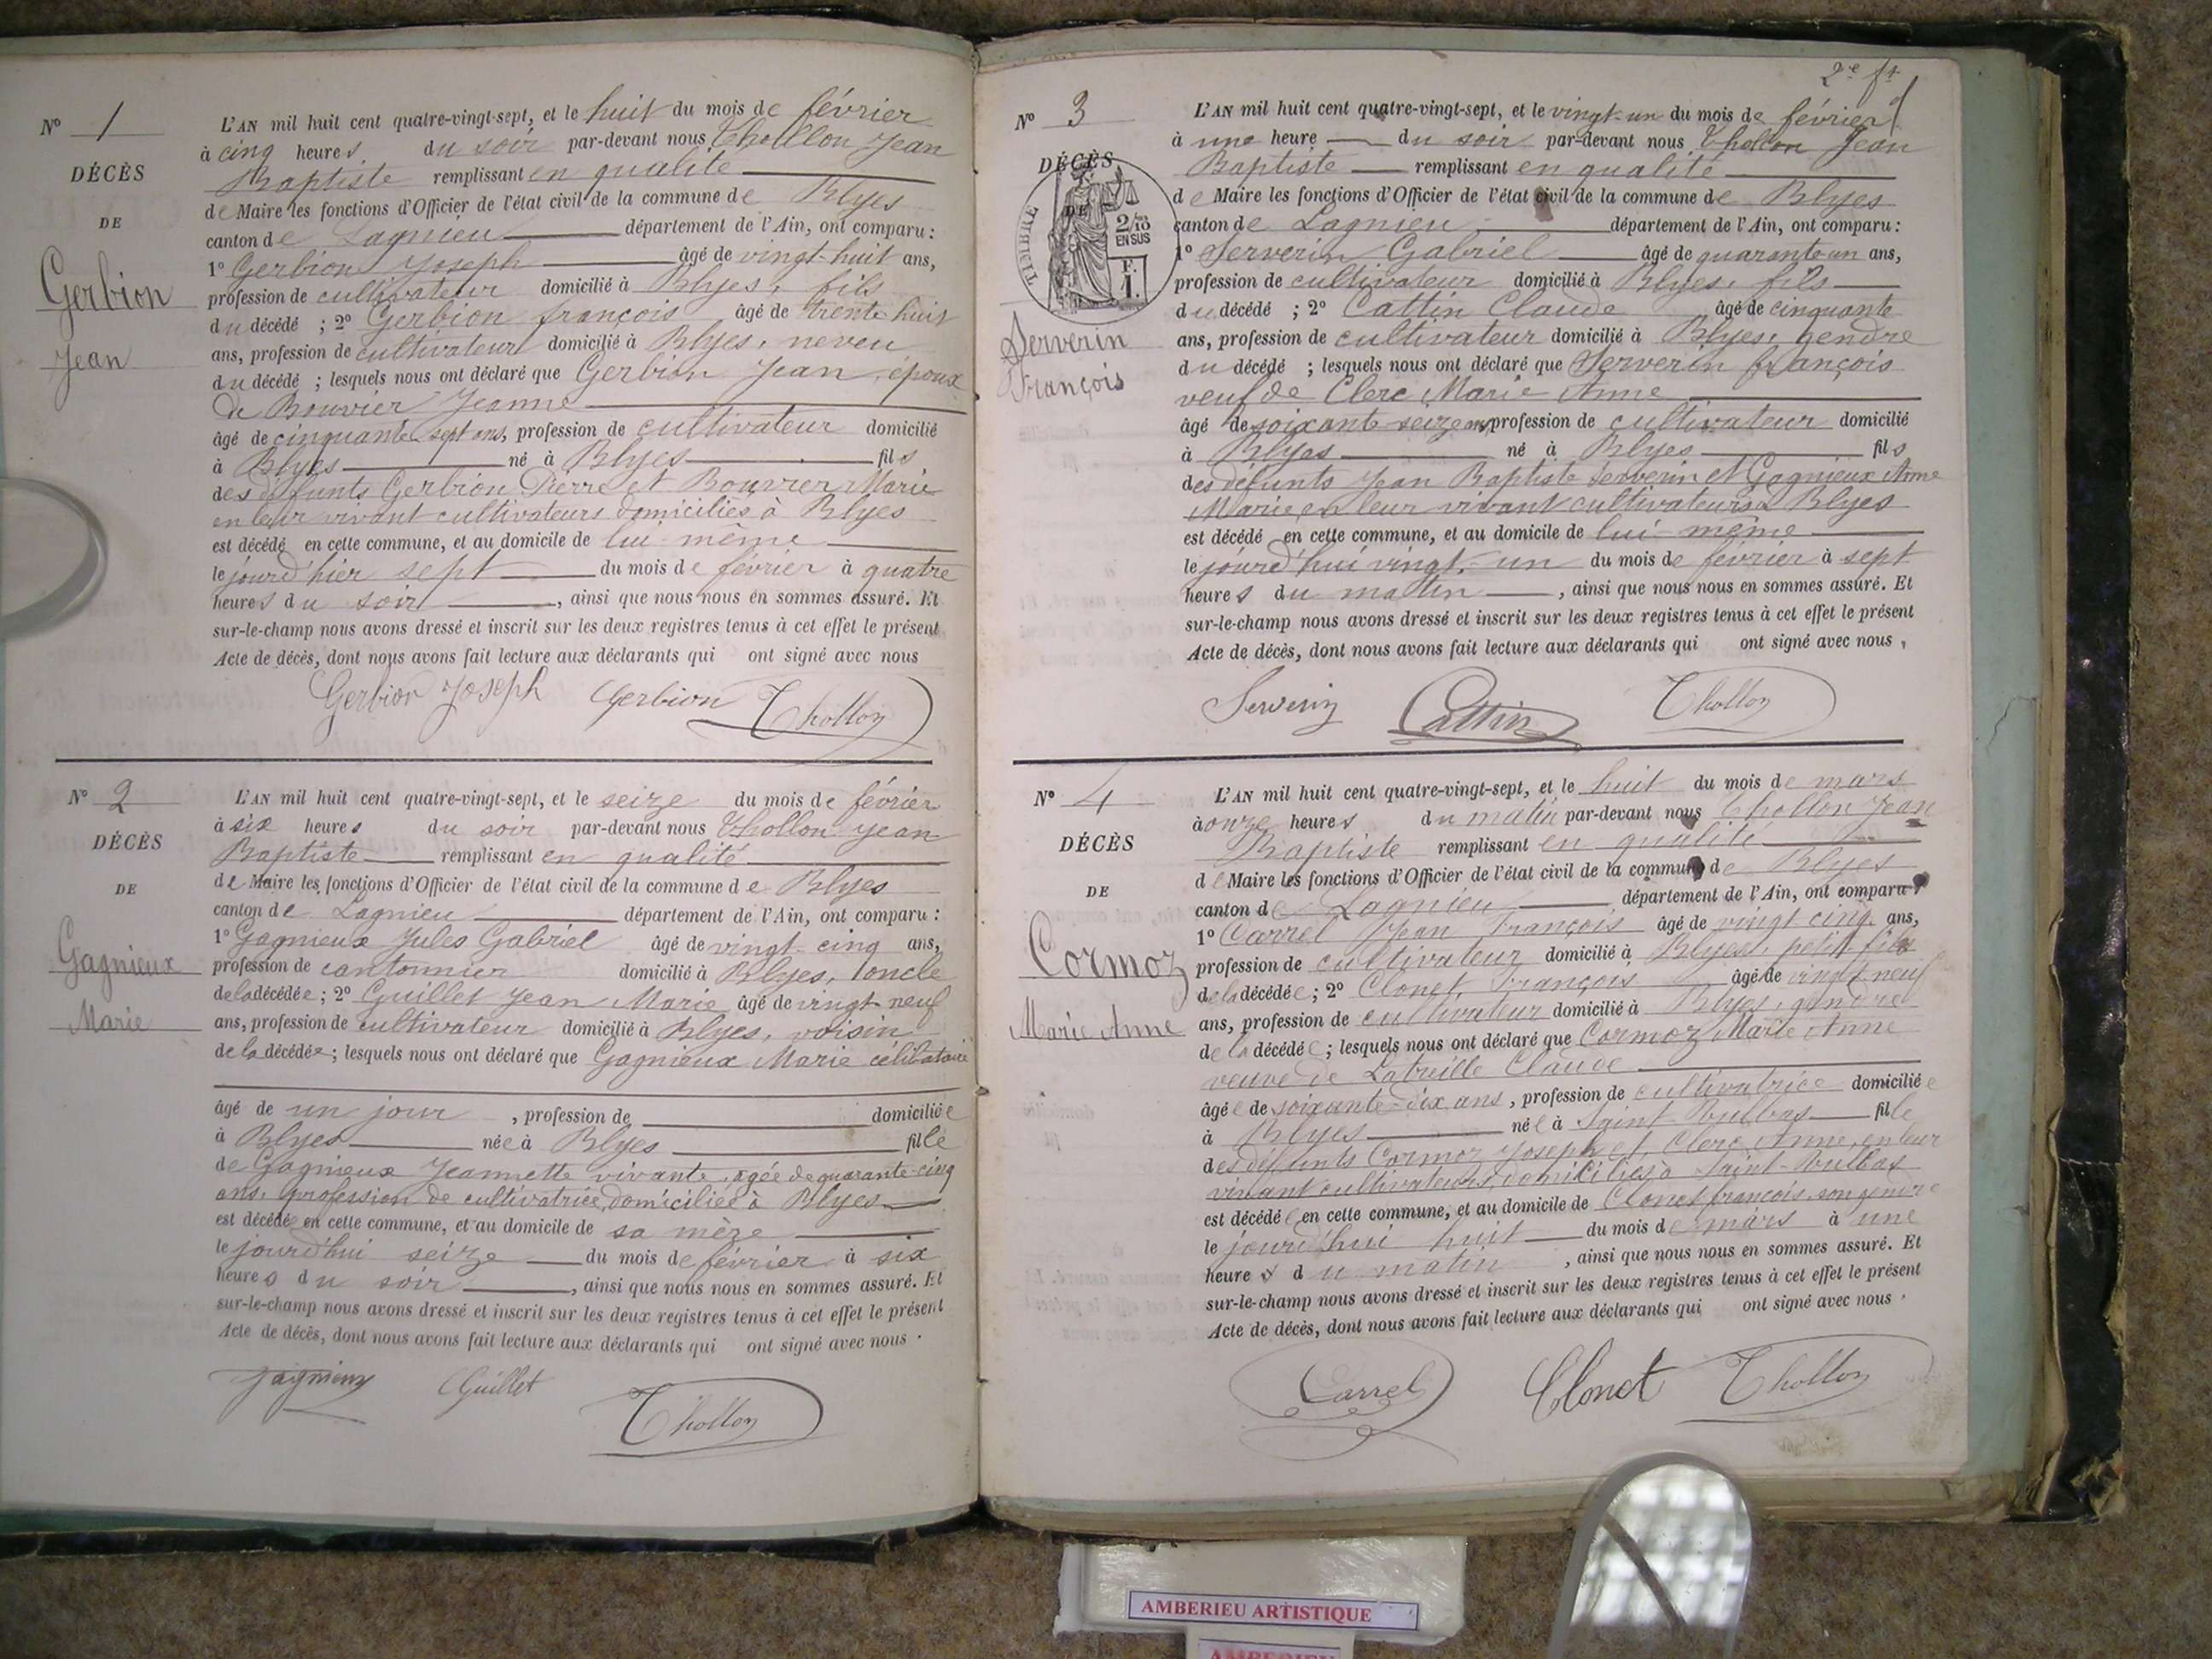 Nº 1
DÉCÈS
DE
Gerbion
Jean
L'AN mil huit cent quatre-vingt-sept, et le huit du mois de février
à cinq heures du soir par-devant nous Thollon Jean
Baptiste remplissant en qualité
de Maire les fonctions d'Officier de l'état civil de la commune de Blyes
canton de Lagnieu département de l'Ain, ont comparu :
1º Gerbion Joseph âgé de vingt-huit ans,
profession de cultivateur domicilié à Blyes, fils
du décédé ; 2º Gerbion françois âgé de trente huit
ans, profession de cultivateur domicilié à Blyes, neveu
du décédé ; lesquels nous ont déclaré que Gerbion Jean, époux
de Bouvier Jeanne
âgé de cinquante-sept ans, profession de cultivateur domicilié
à Blyes né à Blyes fils
des défunts Gerbion Pierre et Bouvier Marie
en leur vivant cultivateurs domiciliés à Blyes
est décédé en cette commune, et au domicile de lui-même
le jourd'hier sept du mois de février à quatre
heures du soir, ainsi que nous nous en sommes assuré. Et
sur-le-champ nous avons dressé et inscrit sur les deux registres tenus à cet effet le présent
Acte de décès, dont nous avons fait lecture aux déclarants qui ont signé avec nous
Gerbion Joseph Gerbion Thollon
Nº 2
DÉCÈS
DE
Gagnieux
Marie
L'AN mil huit cent quatre-vingt-sept, et le seize du mois de février
à six heures du soir par-devant nous Thollon Jean
Baptiste remplissant en qualité
de Maire les fonctions d'Officier de l'état civil de la commune de Blyes
canton de Lagnieu département de l'Ain, ont comparu :
1º Gagnieux Jules Gabriel âgé de vingt-cinq ans,
profession de cantonnier domicilié à Blyes, oncle
de la décédée ; 2º Guillet Jean Marie âgé de vingt-neuf
ans, profession de cultivateur domicilié à Blyes, voisin
de la décédée ; lesquels nous ont déclaré que Gagnieux Marie célibataire
âgé de un jour, profession de domiciliée
à Blyes née à Blyes fille
de Gagnieux Jeannette vivante, agée de quarante-cinq
ans, profession de cultivatrice, domiciliée à Blyes
est décédée en cette commune, et au domicile de sa mère
le jourd'hui seize du mois de février à six
heures du soir, ainsi que nous nous en sommes assuré. Et
sur-le-champ nous avons dressé et inscrit sur les deux registres tenus à cet effet le présent
Acte de décès, dont nous avons fait lecture aux déclarants qui ont signé avec nous .
Gagnieux Guillet Thollon
2e ft
Nº 3
DÉCÈS
DE
TIMBRE
2/10
EN SUS
F.
1.
Serverin
François
L'AN mil huit cent quatre-vingt-sept, et le vingt-un du mois de février
à une heure du soir par-devant nous Thollon Jean
Baptiste remplissant en qualité
de Maire les fonctions d'Officier de l'état civil de la commune de Blyes
canton de Lagnieu département de l'Ain, ont comparu :
1º Serverin Gabriel âgé de quarante un ans,
profession de cultivateur domicilié à Blyes, fils
du décédé ; 2º Cattin Claude âgé de cinquante
ans, profession de cultivateur domicilié à Blyes, gendre
du décédé ; lesquels nous ont déclaré que Serverin françois
veuf de Clerc Marie Anne
âgé de soixante-seize ans profession de cultivateur domicilié
à Blyes né à Blyes fils
des défunts Jean Baptiste Serverin et Gagnieux Anne
Marie, en leur vivant cultivateurs à Blyes
est décédé en cette commune, et au domicile de lui-même
le jourd'hui vingt-un du mois de février à sept
heures du matin, ainsi que nous nous en sommes assuré. Et
sur-le-champ nous avons dressé et inscrit sur les deux registres tenus à cet effet le présent
Acte de décès, dont nous avons fait lecture aux déclarants qui ont signé avec nous ,
Serverin Cattin Thollon
Nº 4
DÉCÈS
DE
Cormoz
Marie Anne
L'AN mil huit cent quatre-vingt-sept, et le huit du mois de mars
à onze heures du matin par-devant nous Thollon Jean
Baptiste remplissant en qualité
de Maire les fonctions d'Officier de l'état civil de la commune de Blyes
canton de Lagnieu département de l'Ain, ont comparu
1º Carrel Jean François âgé de vingt cinq ans,
profession de cultivateur domicilié à Blyes, petit fils
de la décédée ; 2º Clonet François âgé de vingt neuf
ans, profession de cultivateur domicilié à Blyes, gendre
de la décédée ; lesquels nous ont déclaré que Cormoz Marie Anne
veuve de Latreille Claude
âgée de soixante-dix ans, profession de cultivatrice domiciliée
à Blyes née à Saint Vulbas fille
des défunts Cormoz Joseph et Clerc Anne, en leur
vivant cultivateurs, domiciliés à Saint-Vulbas
est décédée en cette commune, et au domicile de Clonet françois, son gendre
le jourd'hui huit du mois de mars à une
heure du matin, ainsi que nous nous en sommes assuré. Et
sur-le-champ nous avons dressé et inscrit sur les deux registres tenus à cet effet le présent
Acte de décès, dont nous avons fait lecture aux déclarants qui ont signé avec nous .
Carrel Clonet Thollon
AMBERIEU ARTISTIQUE
AMBERIEU